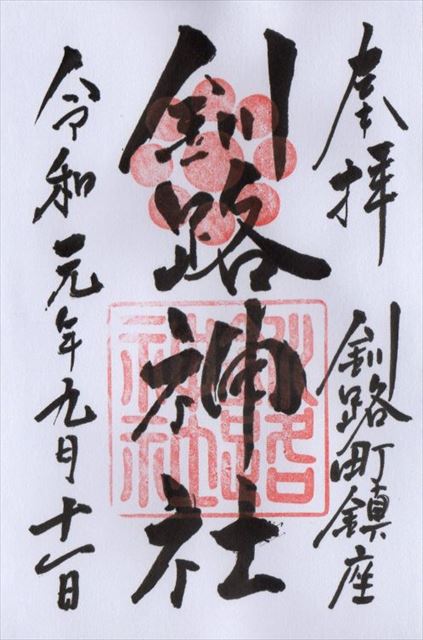 奉拝
釧路町鎮座
釧路神社
釧路
神社
令和元年九月十一日